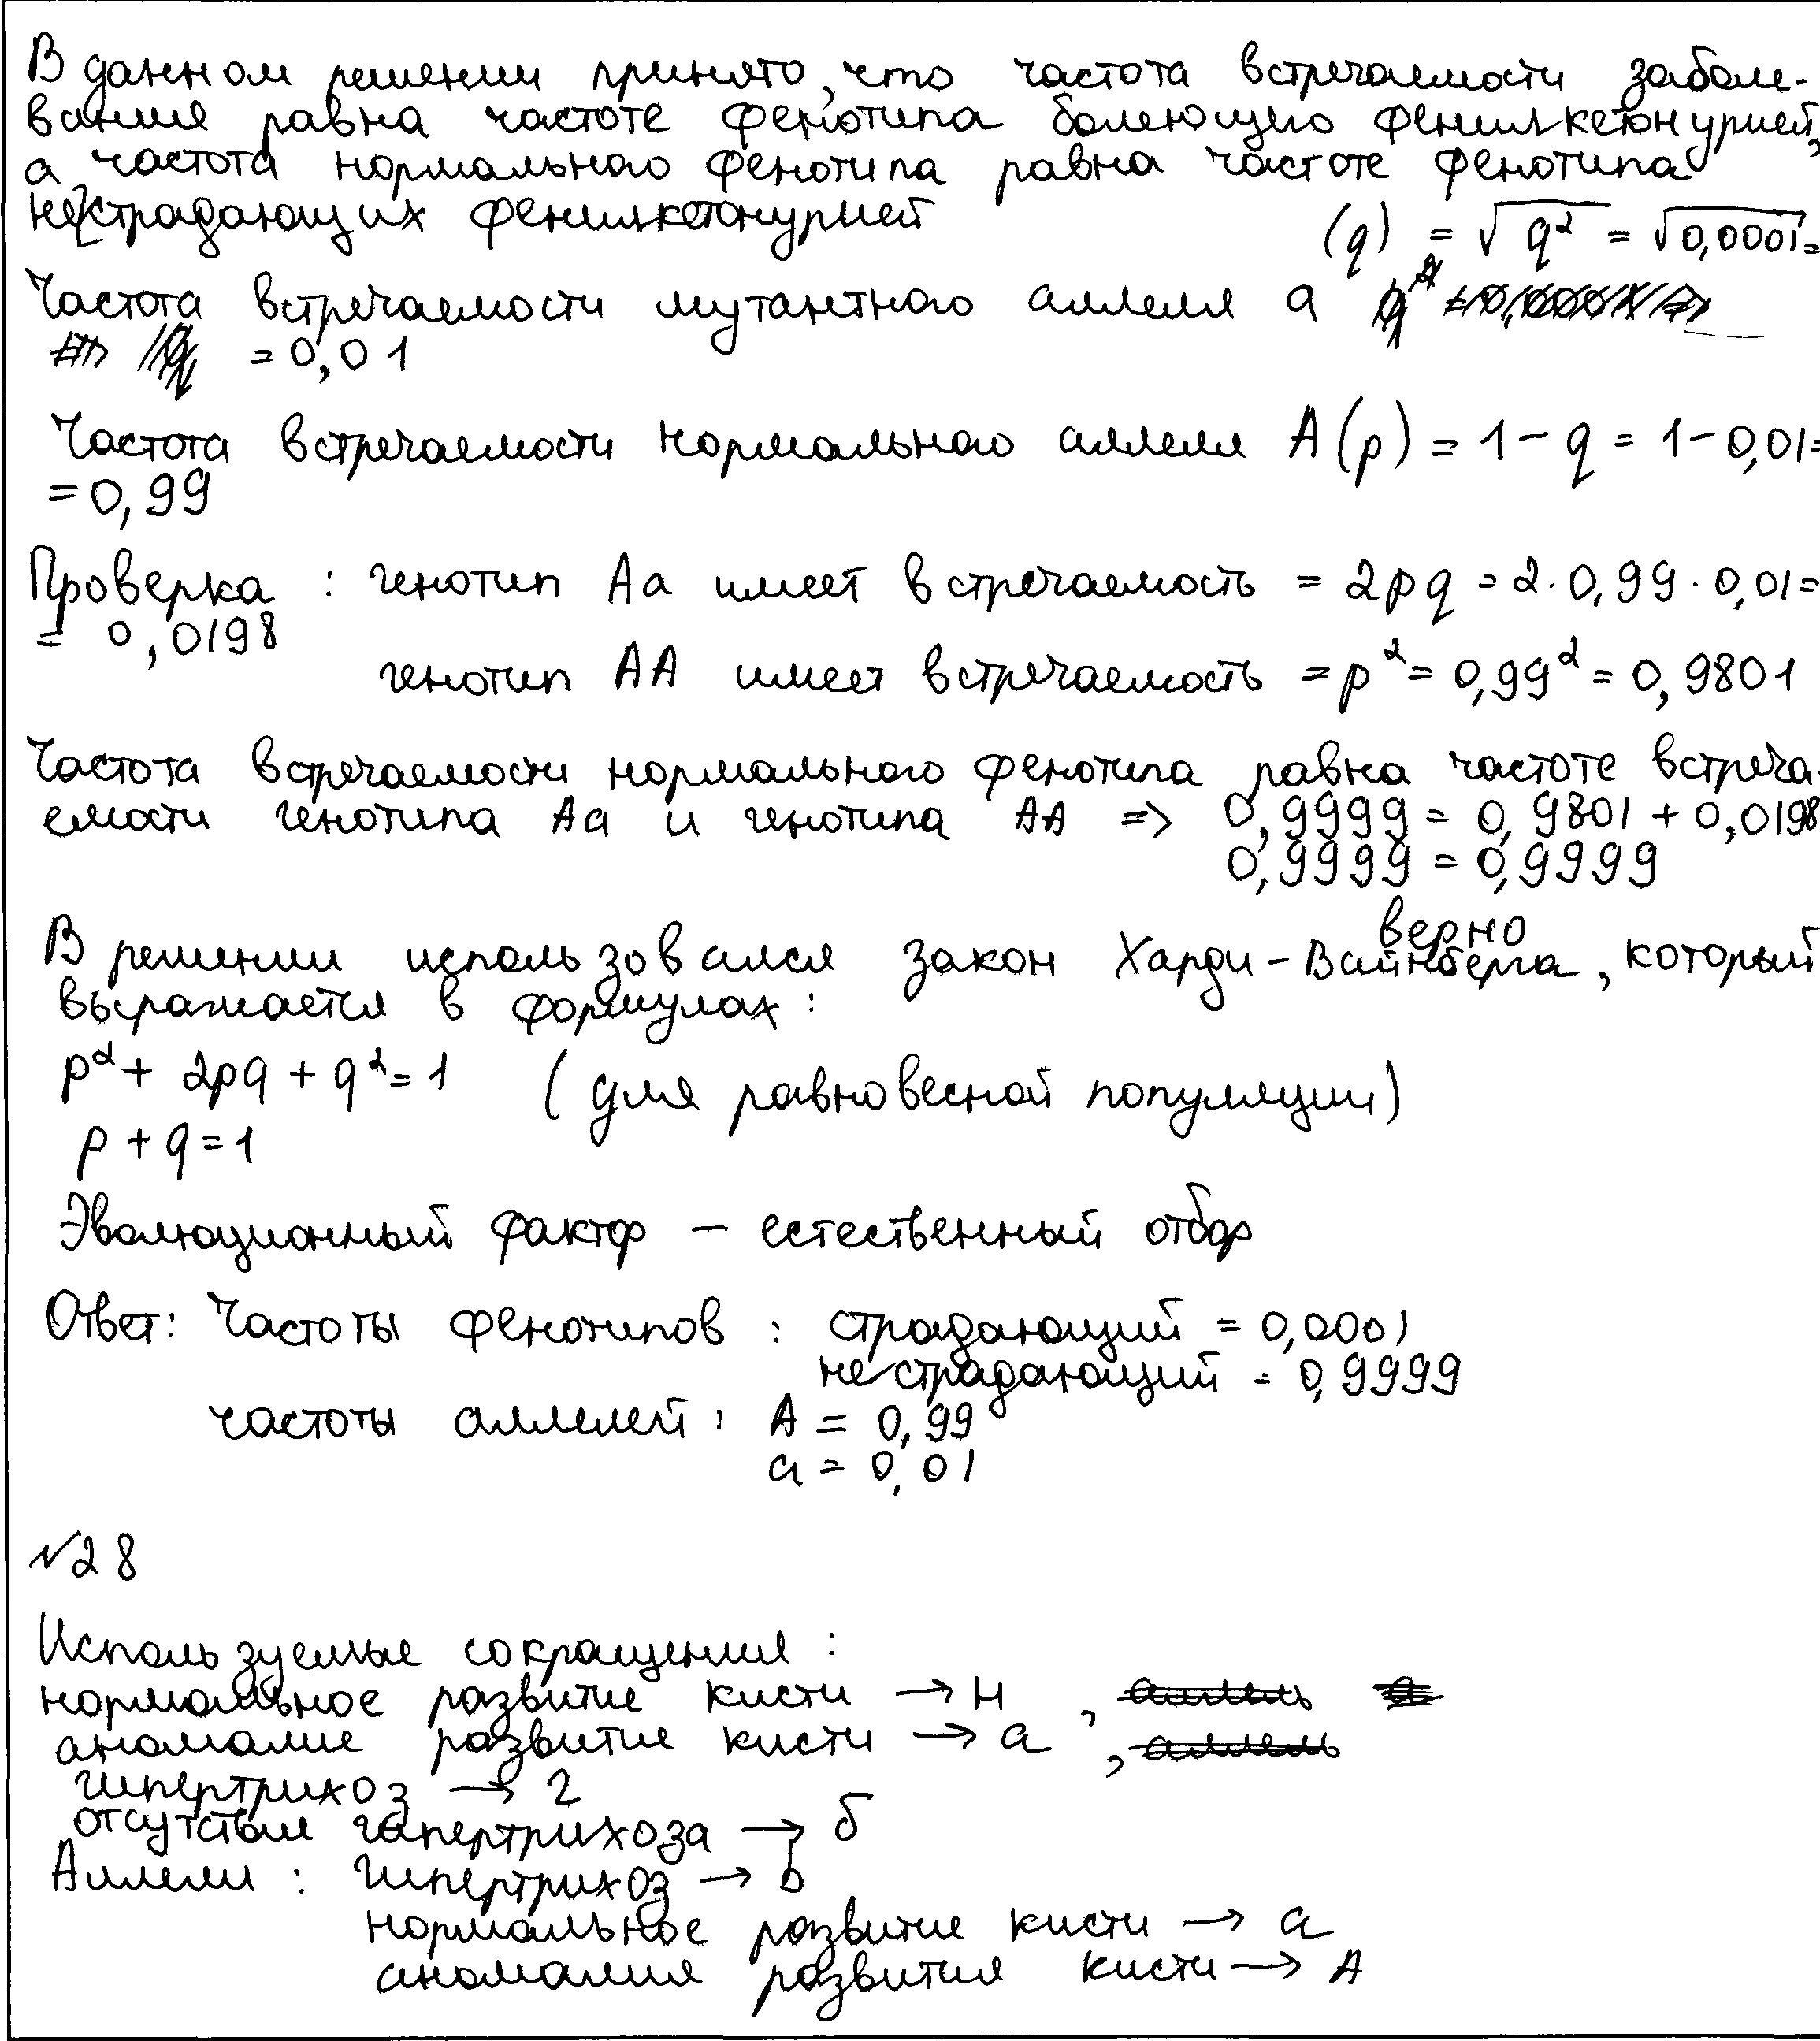 В данном решении принято, что частота встречаемости заболе-
вания равна частоте фенотипа болеющего фенилкетонурией,
а частота нормального фенотипа равна частоте фенотипа
не страдающих фенилкетонурией
(q) = √q² = √0,0001 =
Частота встречаемости мутантного аллеля а
= 0,01
Частота встречаемости нормального аллеля А(p) = 1 - q = 1 - 0,01 =
= 0,99
Проверка : генотип Аа имеет встречаемость = 2pq = 2 · 0,99 · 0,01 =
= 0,0198
генотип АА имеет встречаемость = p² = 0,99² = 0,9801
Частота встречаемости нормального фенотипа равна частоте встреча-
емости генотипа Аа и генотипа АА => 0,9999 = 0,9801 + 0,0198
0,9999 = 0,9999
верно
В решении использовался закон Харди-Вайнберга, который
выражается в формулах :
p² + 2pq + q² = 1 (для равновесной популяции)
p + q = 1
Эволюционный фактор – естественный отбор
Ответ: Частоты фенотипов : страдающий = 0,0001
не страдающий = 0,9999
частоты аллелей : А = 0,99
а = 0,01
№28
Используемые сокращения :
нормальное развитие кисти → н ,
аномалие развитие кисти → а ,
гипертрихоз → г
отсутствие гипертрихоза → б
Аллели : гипертрихоз → b
нормальное развитие кисти → а
аномалия развития кисти → А